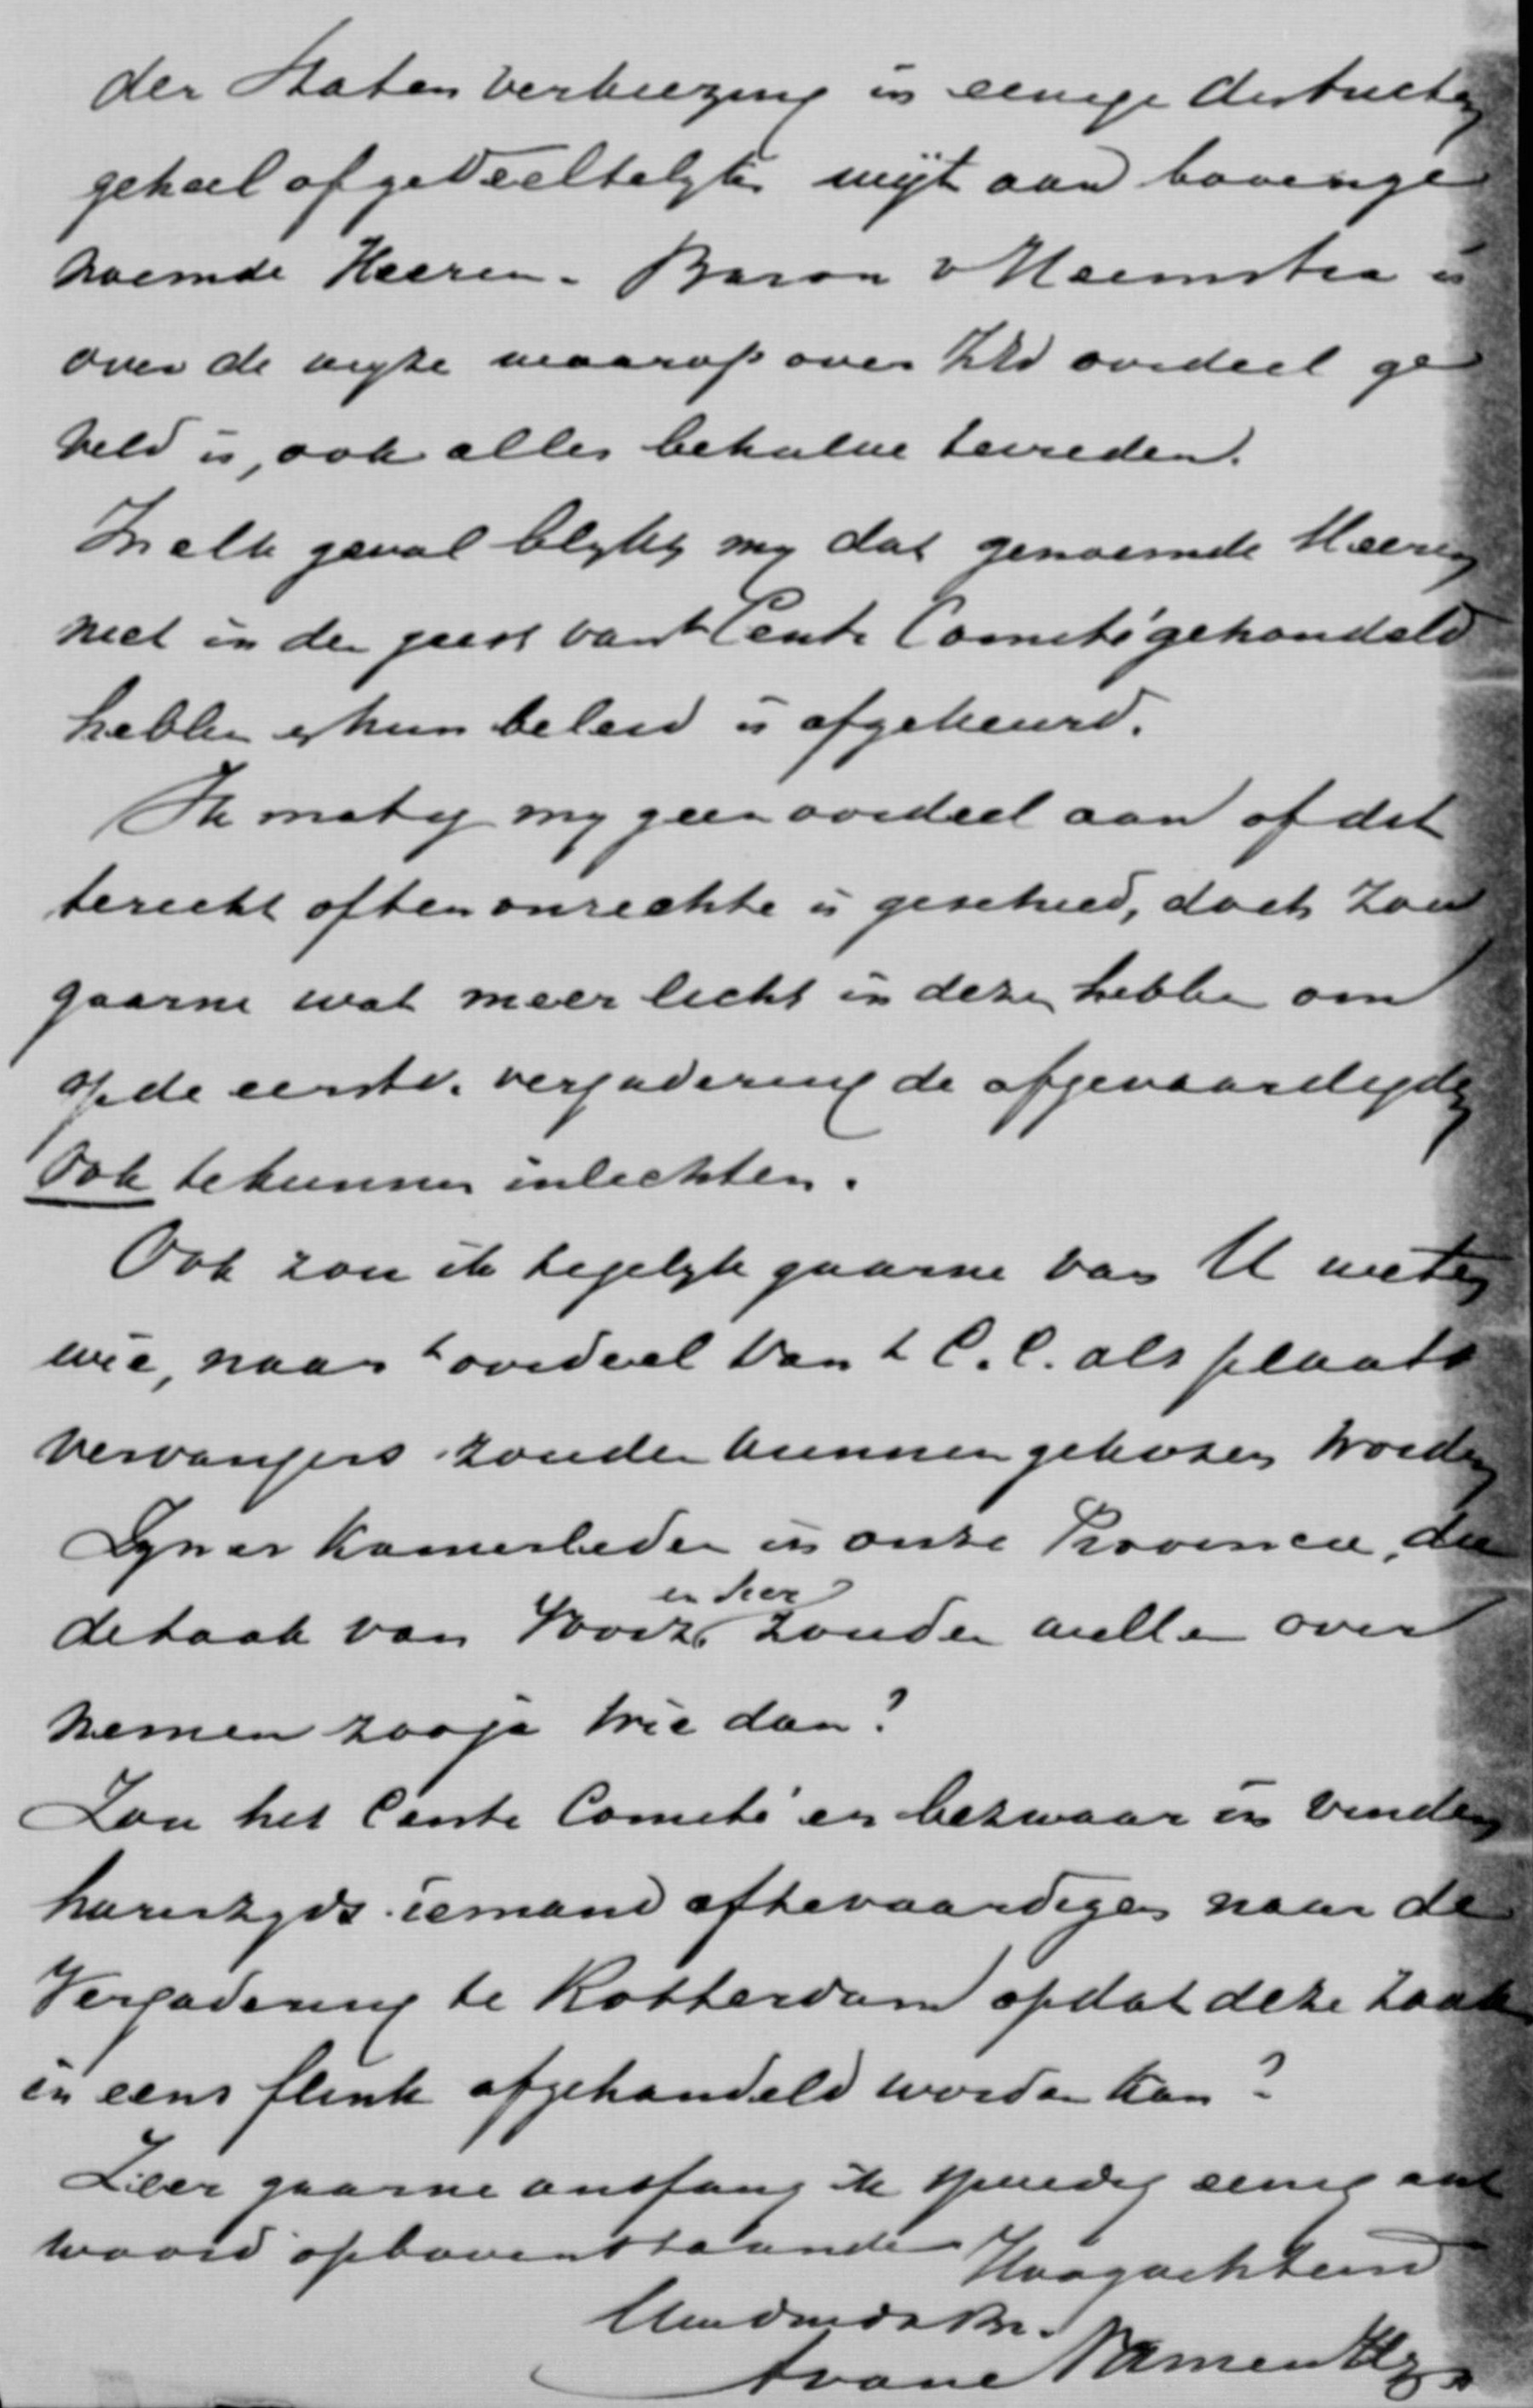 der Staten verkiezing in eenige districten
geheel of gedeeltelijk wijt aan bovenge
noemde Heeren. Baron v Heemstra is
over de wijze waarop over ZEd oordeel ge
veld is, ook alles behalve tevreden.
In elk geval blijkt my dat genoemde Heeren
niet in den geest van t Centr Comité gehandeld
hebben & hun beleid is afgekeurd.
Ik matig my geen oordeel aan of dit
terecht of ten onrechte is geschied, doch zou
gaarne wat meer licht in deze hebben om
op de eerste vergadering de afgevaardigden
ook te kunnen inlichten.
Ook zou ik tegelyk gaarne van U weten
wie, naar t oordeel van t C.C. als plaats
vervangers zouden kunnen gekozen worden
Zyn er Kamerleden in onze Provincie, die
en her
de taak van Voorz. zouden willen over
nemen zoo ja wie dan?
Zou het Centr Comité er bezwaar in vinden
harerzyds iemand aftevaardigen naar de
Vergadering te Rotterdam opdat deze zaak
in eens flink afgehandeld worden kan?
Zeer gaarne ontfang ik spoedig eenig ant
woord op bovenstaande Hoogachtend
Uw dw